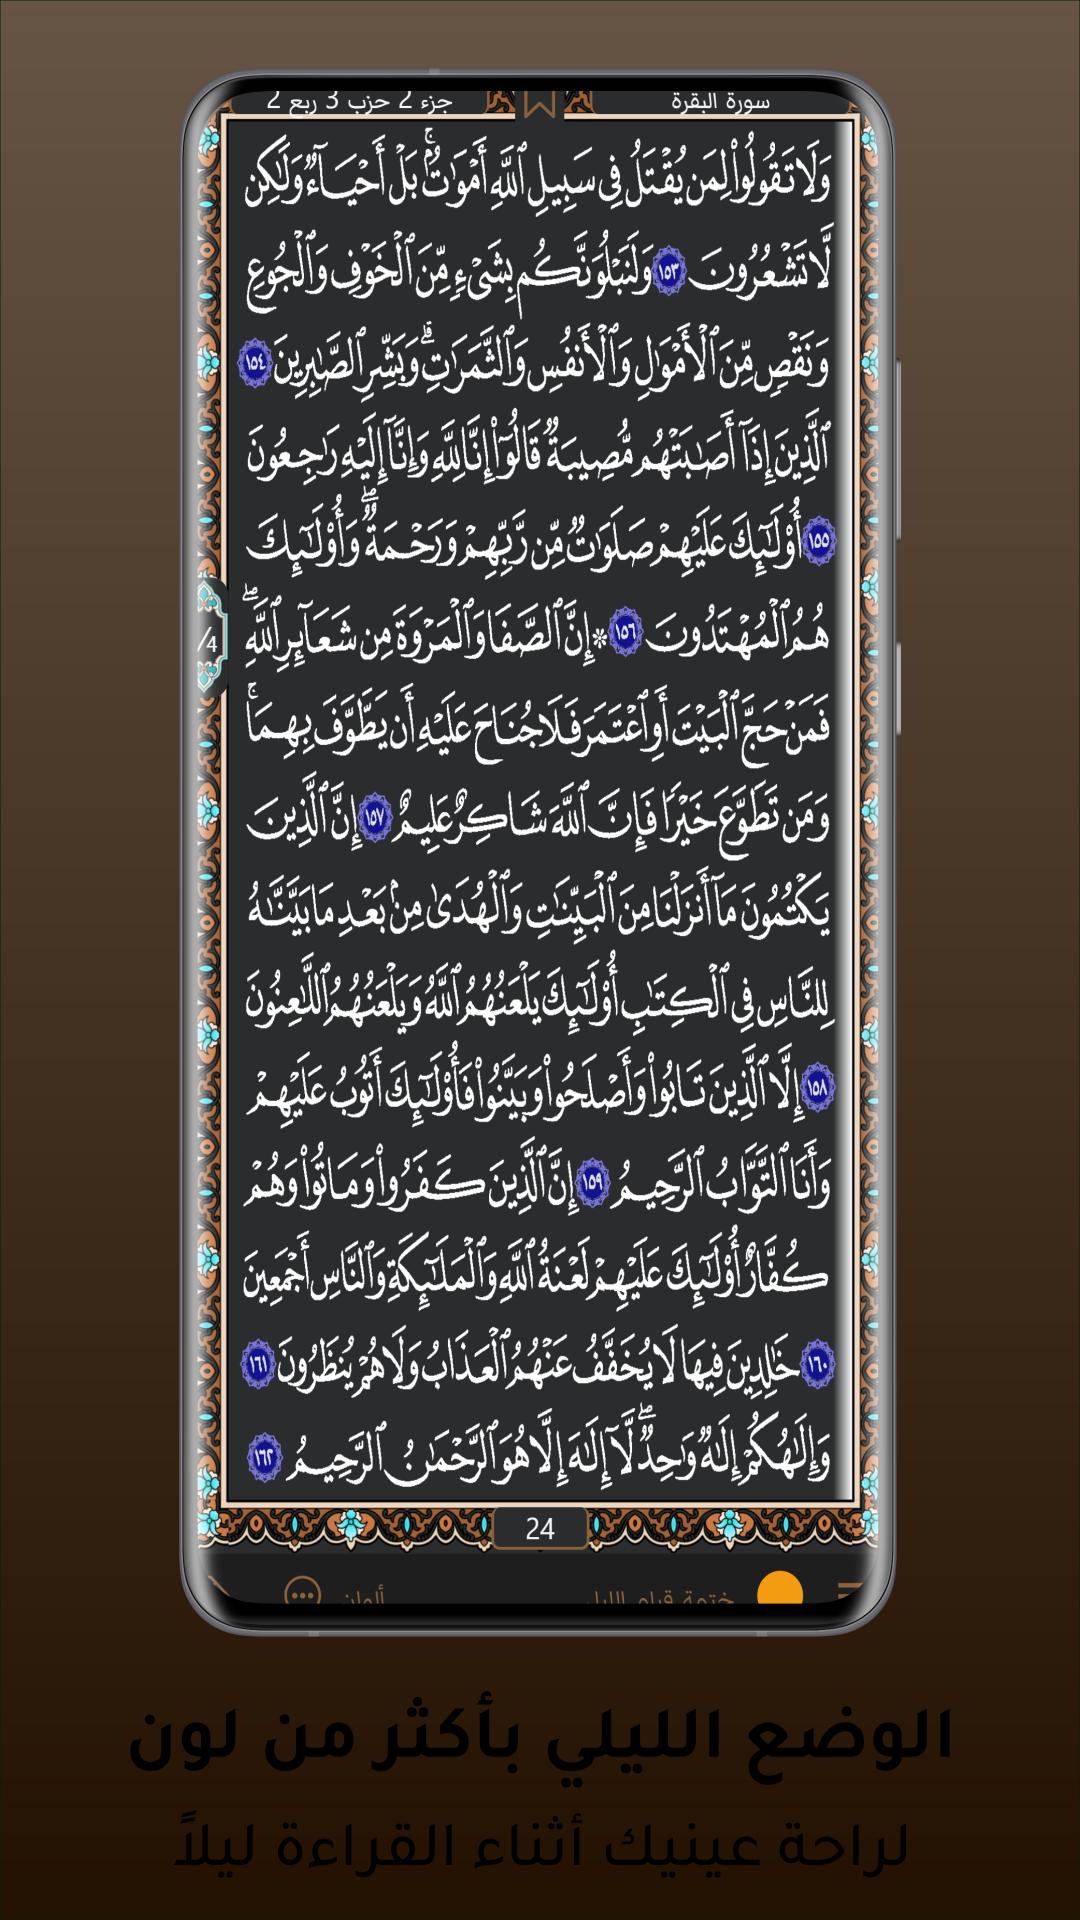 سورة البقرة
جزء 2 حزب 3 ربع 2
وَلَا تَقُولُواْ لِمَن يُقْتَلُ فِى سَبِيلِ ٱللَّهِ أَمْوَٰتٌۢ ۚ بَلْ أَحْيَآءٌ وَلَٰكِن
لَّا تَشْعُرُونَ ١٥٣ وَلَنَبْلُوَنَّكُم بِشَىْءٍ مِّنَ ٱلْخَوْفِ وَٱلْجُوعِ
وَنَقْصٍ مِّنَ ٱلْأَمْوَٰلِ وَٱلْأَنفُسِ وَٱلثَّمَرَٰتِ ۗ وَبَشِّرِ ٱلصَّٰبِرِينَ ١٥٤
ٱلَّذِينَ إِذَآ أَصَٰبَتْهُم مُّصِيبَةٌ قَالُوٓاْ إِنَّا لِلَّهِ وَإِنَّآ إِلَيْهِ رَٰجِعُونَ
١٥٥ أُوْلَٰٓئِكَ عَلَيْهِمْ صَلَوَٰتٌ مِّن رَّبِّهِمْ وَرَحْمَةٌ ۖ وَأُوْلَٰٓئِكَ
هُمُ ٱلْمُهْتَدُونَ ١٥٦ * إِنَّ ٱلصَّفَا وَٱلْمَرْوَةَ مِن شَعَآئِرِ ٱللَّهِ ۖ
/4
فَمَنْ حَجَّ ٱلْبَيْتَ أَوِ ٱعْتَمَرَ فَلَا جُنَاحَ عَلَيْهِ أَن يَطَّوَّفَ بِهِمَا ۚ
وَمَن تَطَوَّعَ خَيْرًا فَإِنَّ ٱللَّهَ شَاكِرٌ عَلِيمٌ ١٥٧ إِنَّ ٱلَّذِينَ
يَكْتُمُونَ مَآ أَنزَلْنَا مِنَ ٱلْبَيِّنَٰتِ وَٱلْهُدَىٰ مِنۢ بَعْدِ مَا بَيَّنَّٰهُ
لِلنَّاسِ فِى ٱلْكِتَٰبِ أُوْلَٰٓئِكَ يَلْعَنُهُمُ ٱللَّهُ وَيَلْعَنُهُمُ ٱللَّٰعِنُونَ
١٥٨ إِلَّا ٱلَّذِينَ تَابُواْ وَأَصْلَحُواْ وَبَيَّنُواْ فَأُوْلَٰٓئِكَ أَتُوبُ عَلَيْهِمْ
وَأَنَا ٱلتَّوَّابُ ٱلرَّحِيمُ ١٥٩ إِنَّ ٱلَّذِينَ كَفَرُواْ وَمَاتُواْ وَهُمْ
كُفَّارٌ أُوْلَٰٓئِكَ عَلَيْهِمْ لَعْنَةُ ٱللَّهِ وَٱلْمَلَٰٓئِكَةِ وَٱلنَّاسِ أَجْمَعِينَ
١٦٠ خَٰلِدِينَ فِيهَا لَا يُخَفَّفُ عَنْهُمُ ٱلْعَذَابُ وَلَا هُمْ يُنظَرُونَ ١٦١
وَإِلَٰهُكُمْ إِلَٰهٌ وَٰحِدٌ ۖ لَّآ إِلَٰهَ إِلَّا هُوَ ٱلرَّحْمَٰنُ ٱلرَّحِيمُ ١٦٢
24
ختمة قيام الليل
ألوان
الوضع الليلي بأكثر من لون
لراحة عينيك أثناء القراءة ليلاً